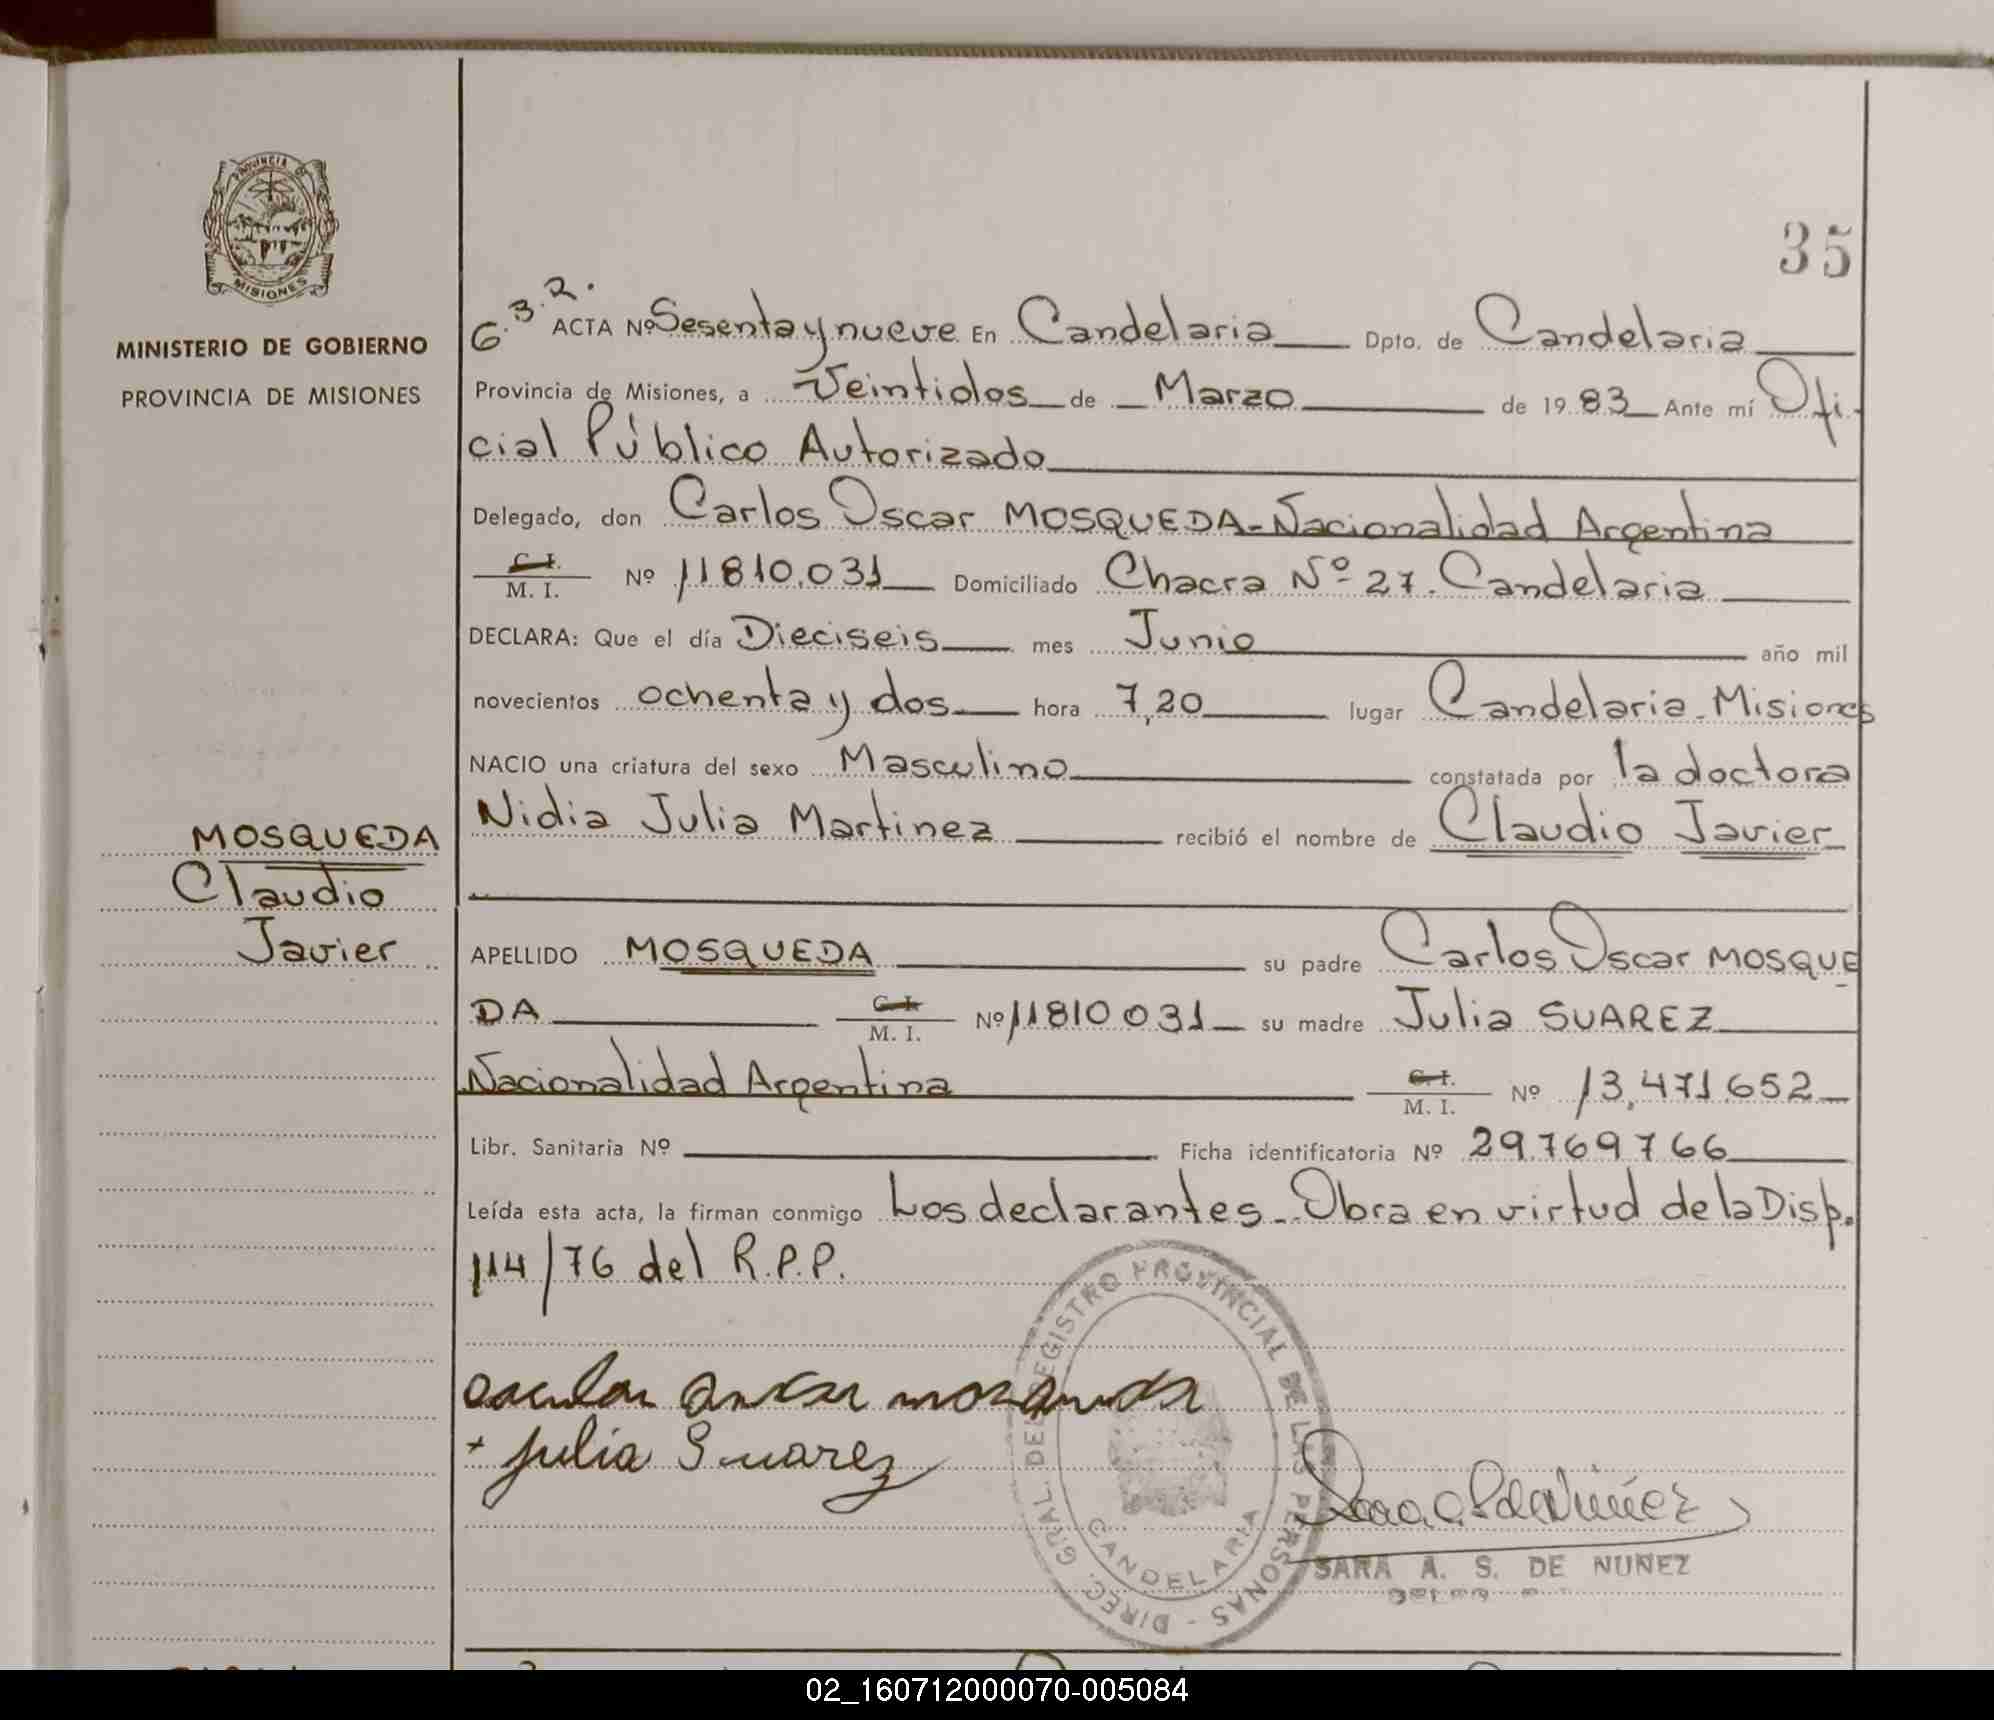 PROVINCIA DE
MISIONES
MINISTERIO DE GOBIERNO
PROVINCIA DE MISIONES
MOSQUEDA
Claudio
Javier
35
6.3.2.
ACTA Nº Sesenta y nueve En Candelaria Dpto. de Candelaria
Provincia de Misiones, a Veintidos de Marzo de 1983 Ante mí Ofi-
cial Público Autorizado
Delegado, don Carlos Oscar MOSQUEDA - Nacionalidad Argentina
C. I.
M. I. Nº 11810.031 Domiciliado Chacra Nº 27. Candelaria
DECLARA: Que el día Dieciseis mes Junio año mil
novecientos ochenta y dos hora 7,20 lugar Candelaria - Misiones
NACIO una criatura del sexo Masculino constatada por la doctora
Nidia Julia Martinez recibió el nombre de Claudio Javier
APELLIDO MOSQUEDA su padre Carlos Oscar MOSQUE
DA C. I.
M. I. Nº 11810031 su madre Julia SUAREZ
Nacionalidad Argentina C. I.
M. I. Nº 13,471.652
Libr. Sanitaria Nº Ficha identificatoria Nº 29.769766
Leída esta acta, la firman conmigo Los declarantes - Obra en virtud de la Disp.
114/76 del R.P.P.
DIREC. GRAL. DEL REGISTRO PROVINCIAL DE LAS PERSONAS -
CANDELARIA
+ julia Suarez
SARA A. S. DE NUÑEZ
02_160712000070-005084